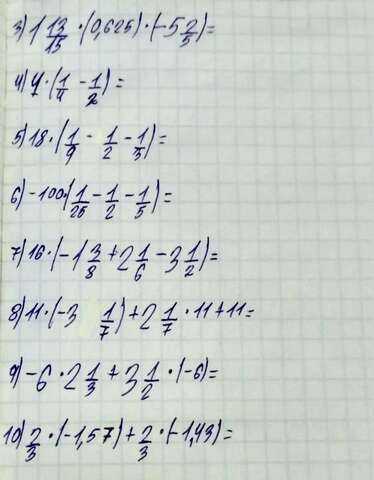 3) 1 13/15 · (0,625) · (-5 2/5) =
4) 4 · (1/4 - 1/2) =
5) 18 · (1/9 - 1/2 - 1/3) =
6) -100 · (1/25 - 1/2 - 1/5) =
7) 16 · (-1 3/8 + 2 1/6 - 3 1/2) =
8) 11 · (-3 1/7) + 2 1/7 · 11 + 11 =
9) -6 · 2 1/3 + 3 1/2 · (-6) =
10) 2/3 · (-1,57) + 2/3 · (-1,43) =